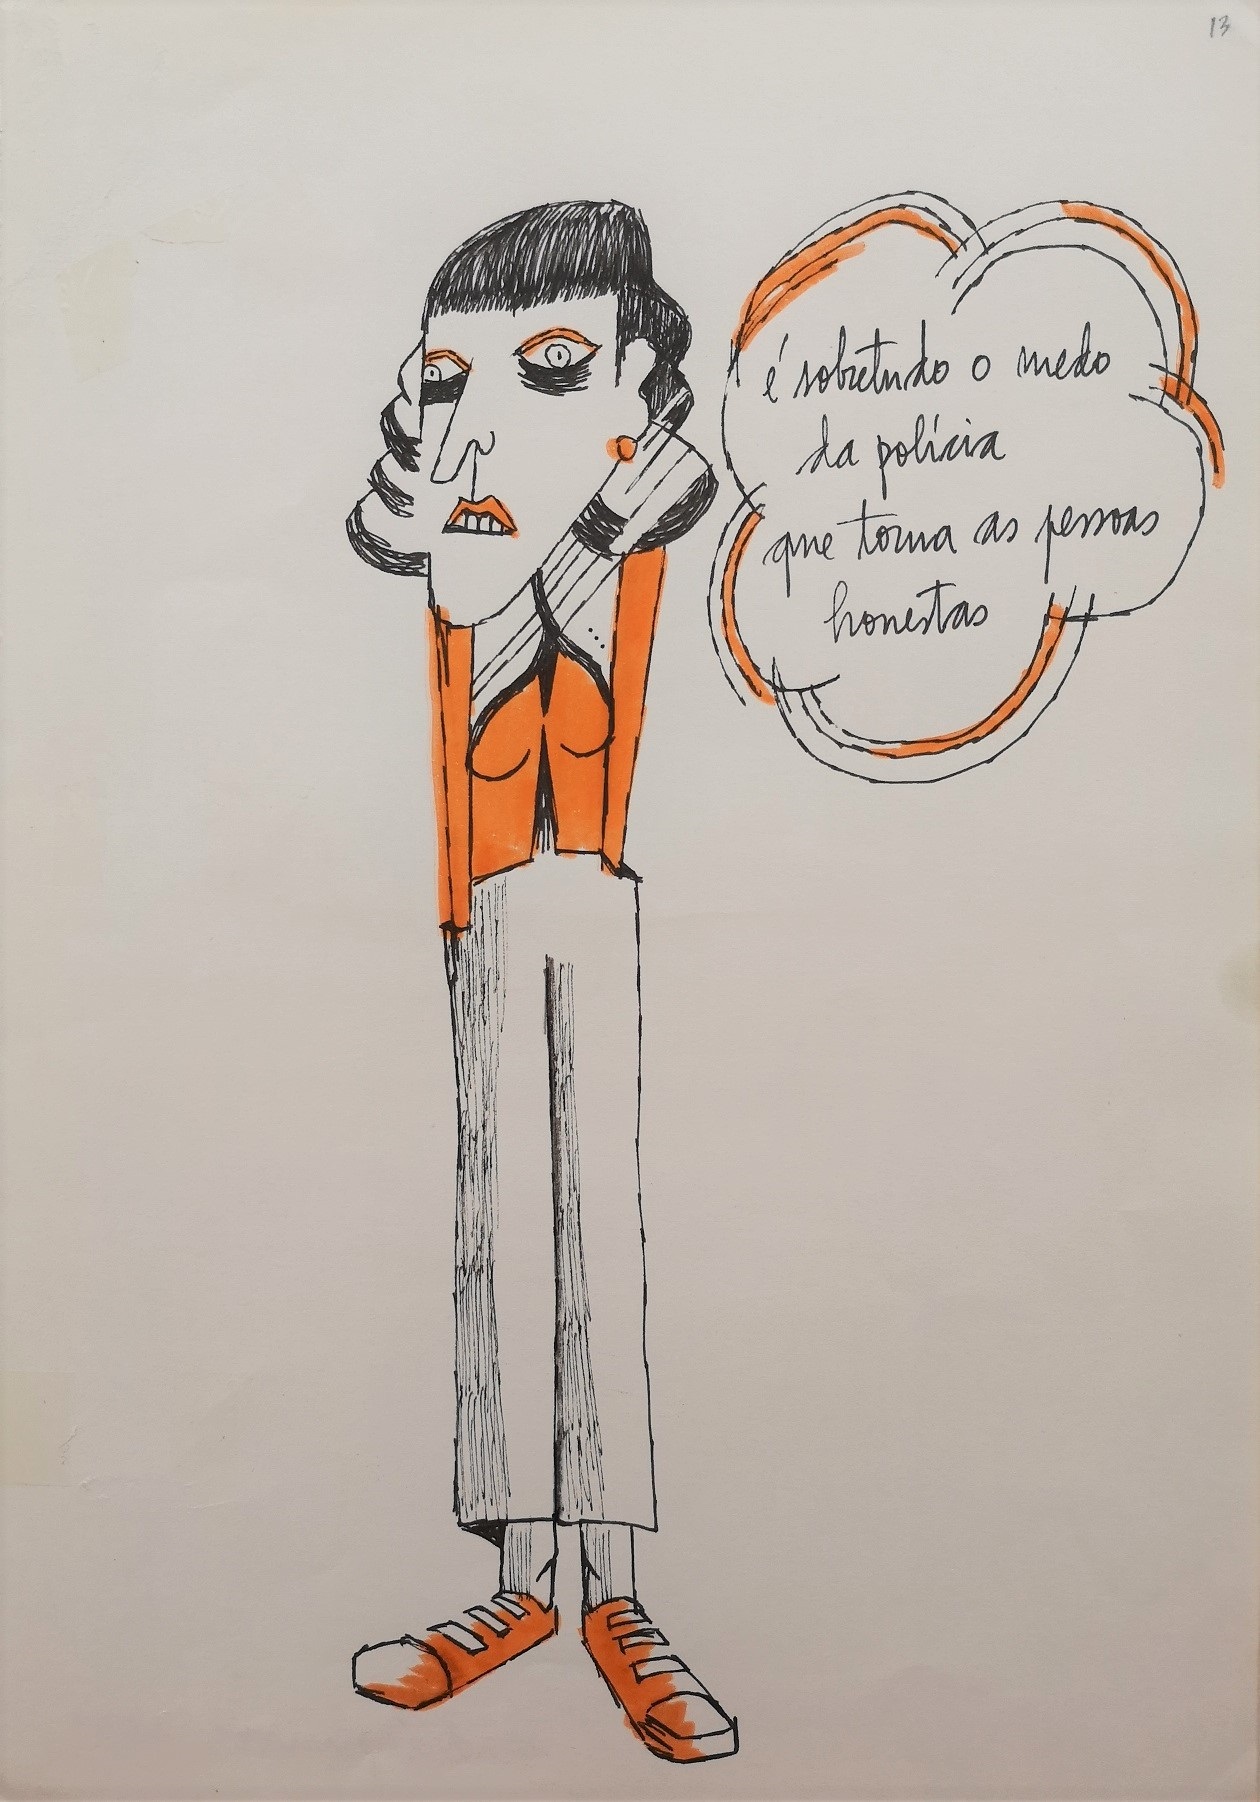 13
é sobretudo o medo
da polícia
que torna as pessoas
honestas